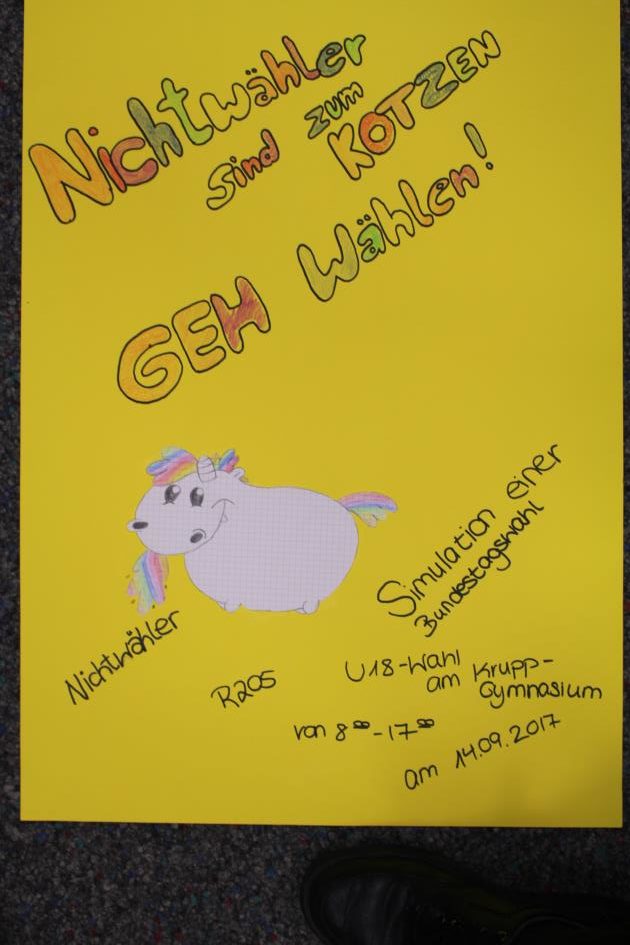 Nichtwähler
sind zum
KOTZEN
GEH Wählen!
Simulation einer
Bundestagswahl
Nichtwähler
R205
U18-Wahl
am Krupp-
Gymnasium
von 8⁰⁰-17⁰⁰
am 14.09.2017